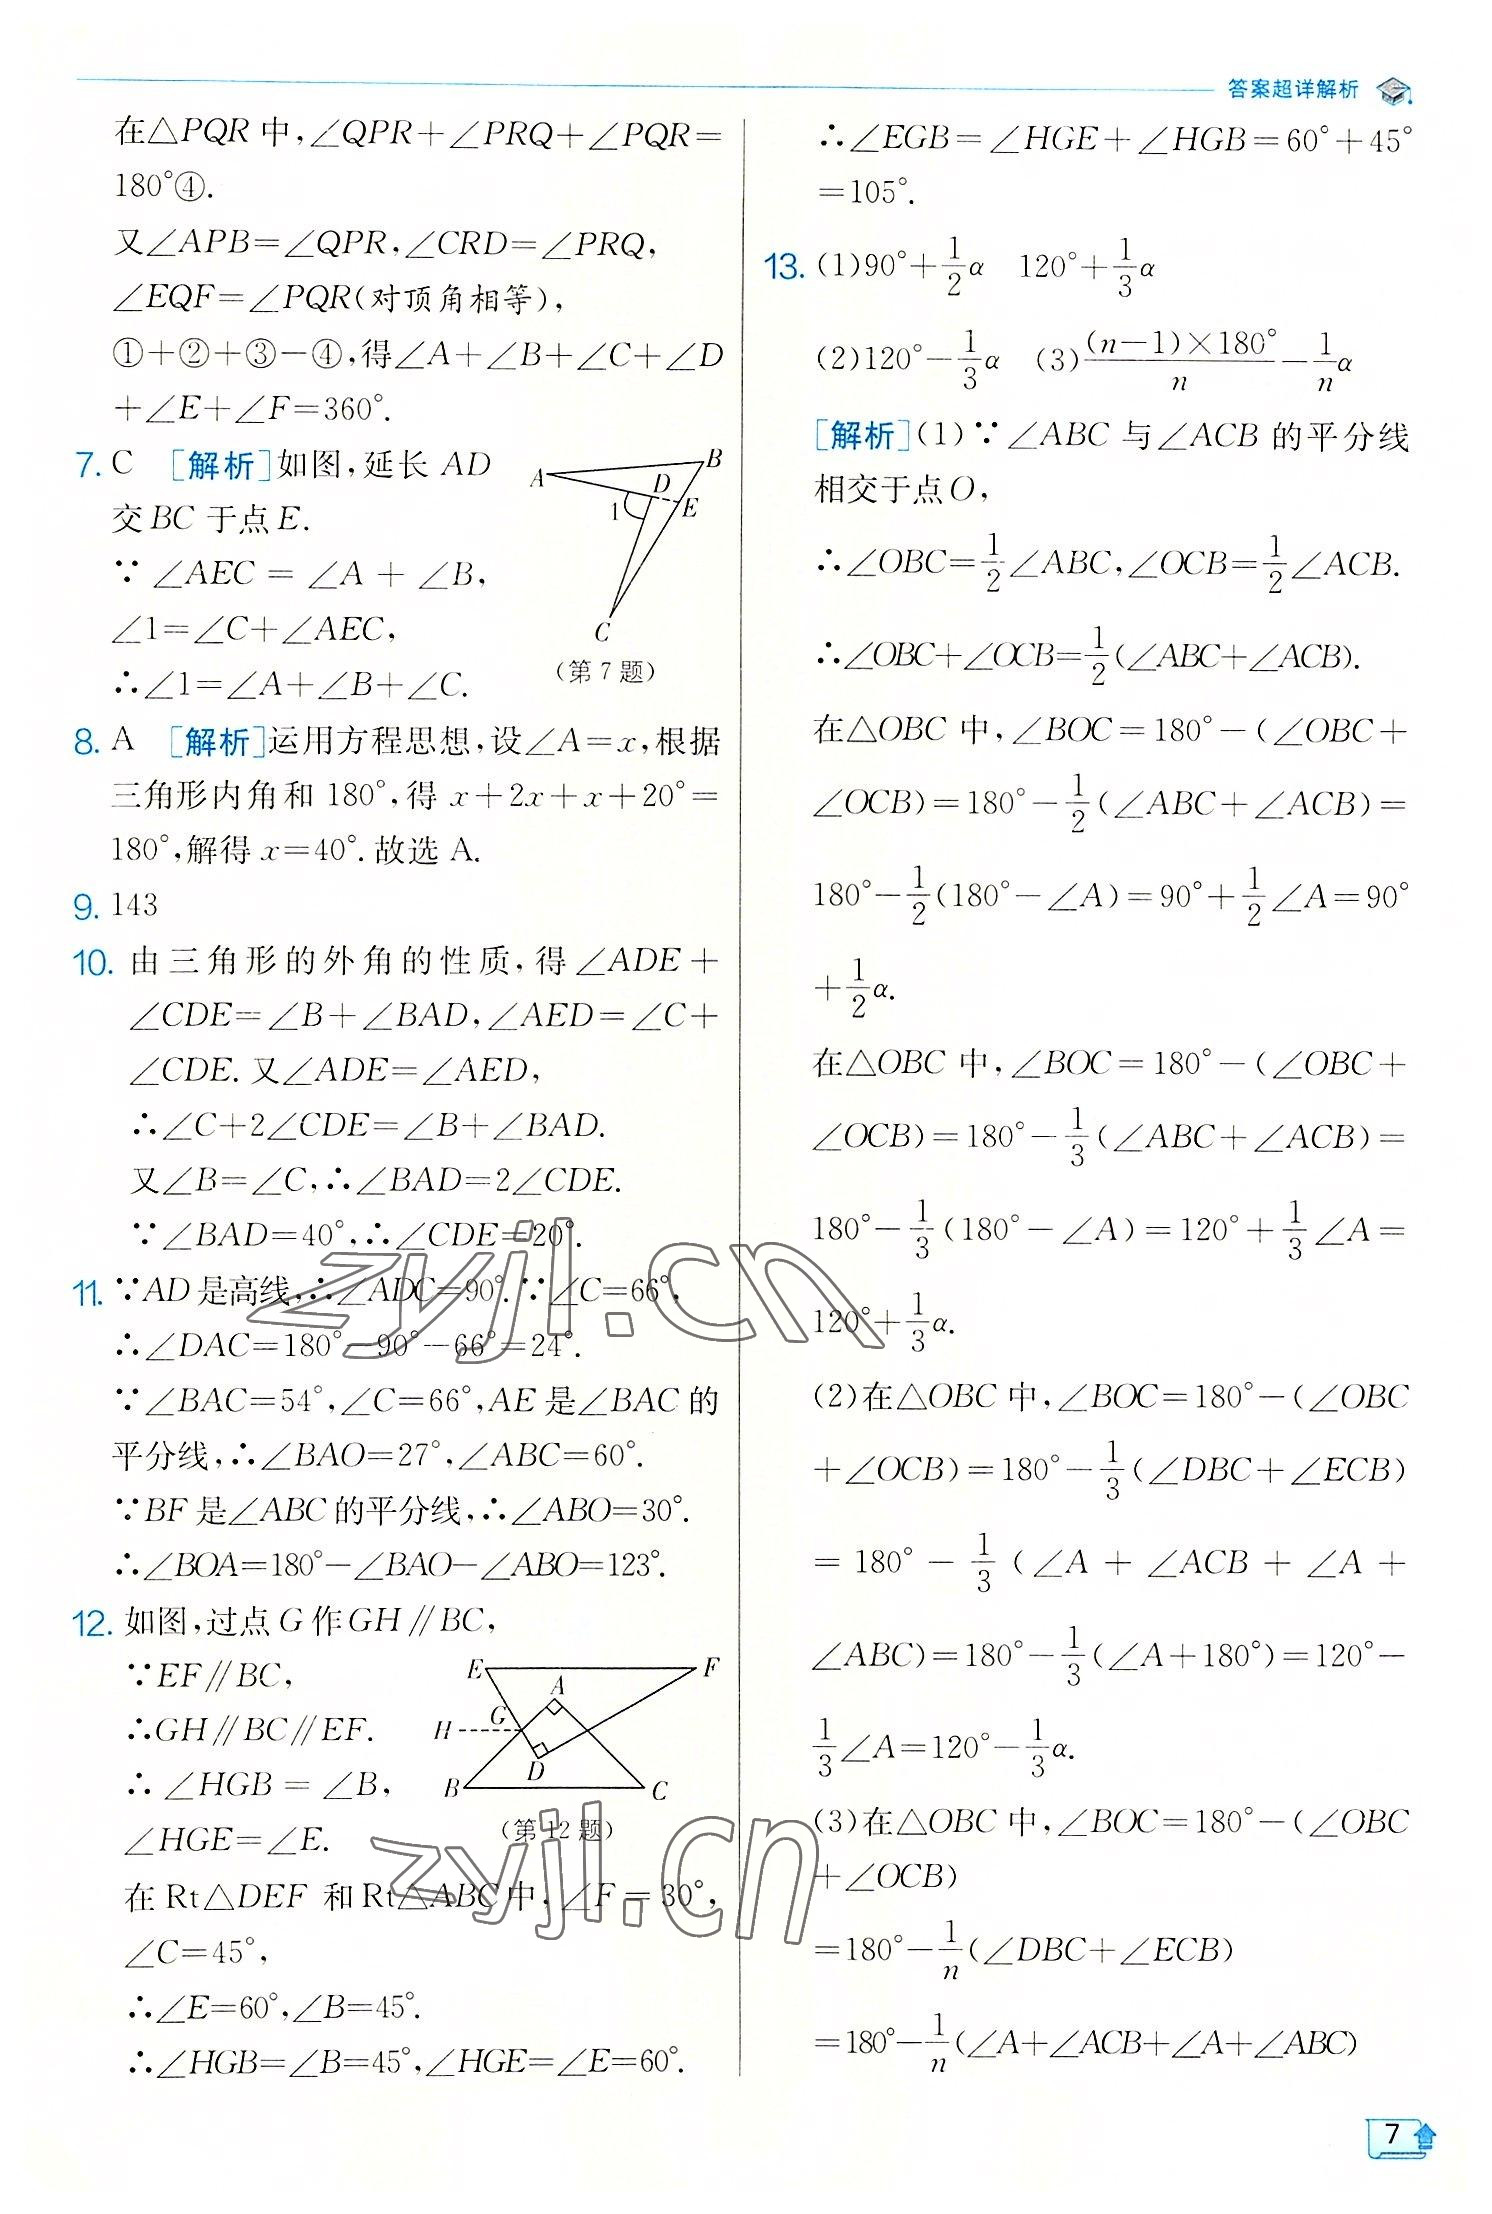 答案超详解析
在△PQR 中,∠QPR+∠PRQ+∠PQR=
180°④.
又∠APB=∠QPR,∠CRD=∠PRQ,
∠EQF=∠PQR(对顶角相等),
①+②+③-④,得∠A+∠B+∠C+∠D
+∠E+∠F=360°.
7. C [解析]如图,延长 AD
交 BC 于点 E.
∵∠AEC=∠A+∠B,
∠1=∠C+∠AEC,
∴∠1=∠A+∠B+∠C.
A
B
D
E
1
C
(第 7 题)
8. A [解析]运用方程思想,设∠A=x,根据
三角形内角和 180°,得 x+2x+x+20°=
180°,解得 x=40°.故选 A.
9. 143
10. 由三角形的外角的性质,得∠ADE+
∠CDE=∠B+∠BAD,∠AED=∠C+
∠CDE.又∠ADE=∠AED,
∴∠C+2∠CDE=∠B+∠BAD.
又∠B=∠C,∴∠BAD=2∠CDE.
∵∠BAD=40°,∴∠CDE=20°.
11. ∵AD 是高线,∴∠ADC=90°.∵∠C=66°,
∴∠DAC=180°-90°-66°=24°.
∵∠BAC=54°,∠C=66°,AE 是∠BAC 的
平分线,∴∠BAO=27°,∠ABC=60°.
∵BF 是∠ABC 的平分线,∴∠ABO=30°.
∴∠BOA=180°-∠BAO-∠ABO=123°.
12. 如图,过点 G 作 GH∥BC,
∵EF∥BC,
∴GH∥BC∥EF.
∴∠HGB=∠B,
∠HGE=∠E.
E
F
A
G
H
D
B
C
(第 12 题)
在 Rt△DEF 和 Rt△ABC 中,∠F=30°,
∠C=45°,
∴∠E=60°,∠B=45°.
∴∠HGB=∠B=45°,∠HGE=∠E=60°.
∴∠EGB=∠HGE+∠HGB=60°+45°
=105°.
13. (1)90°+1/2α 120°+1/3α
(2)120°-1/3α (3)(n-1)×180°/n-1/nα
[解析](1)∵∠ABC 与∠ACB 的平分线
相交于点 O,
∴∠OBC=1/2∠ABC,∠OCB=1/2∠ACB.
∴∠OBC+∠OCB=1/2(∠ABC+∠ACB).
在△OBC 中,∠BOC=180°-(∠OBC+
∠OCB)=180°-1/2(∠ABC+∠ACB)=
180°-1/2(180°-∠A)=90°+1/2∠A=90°
+1/2α.
在△OBC 中,∠BOC=180°-(∠OBC+
∠OCB)=180°-1/3(∠ABC+∠ACB)=
180°-1/3(180°-∠A)=120°+1/3∠A=
120°+1/3α.
(2)在△OBC 中,∠BOC=180°-(∠OBC
+∠OCB)=180°-1/3(∠DBC+∠ECB)
=180°-1/3(∠A+∠ACB+∠A+
∠ABC)=180°-1/3(∠A+180°)=120°-
1/3∠A=120°-1/3α.
(3)在△OBC 中,∠BOC=180°-(∠OBC
+∠OCB)
=180°-1/n(∠DBC+∠ECB)
=180°-1/n(∠A+∠ACB+∠A+∠ABC)
zyjl.cn
zyjl.cn
7